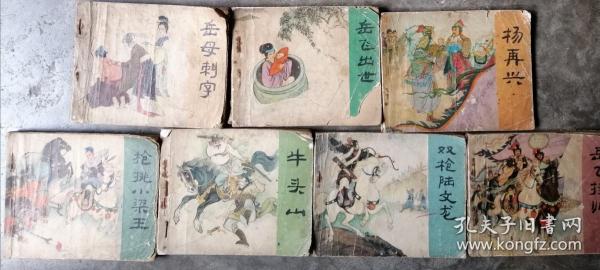 岳母刺字
岳飞出世
杨再兴
枪挑小梁王
牛头山
双枪陆文龙
岳飞挂帅
孔夫子旧书网
www.kongfz.com